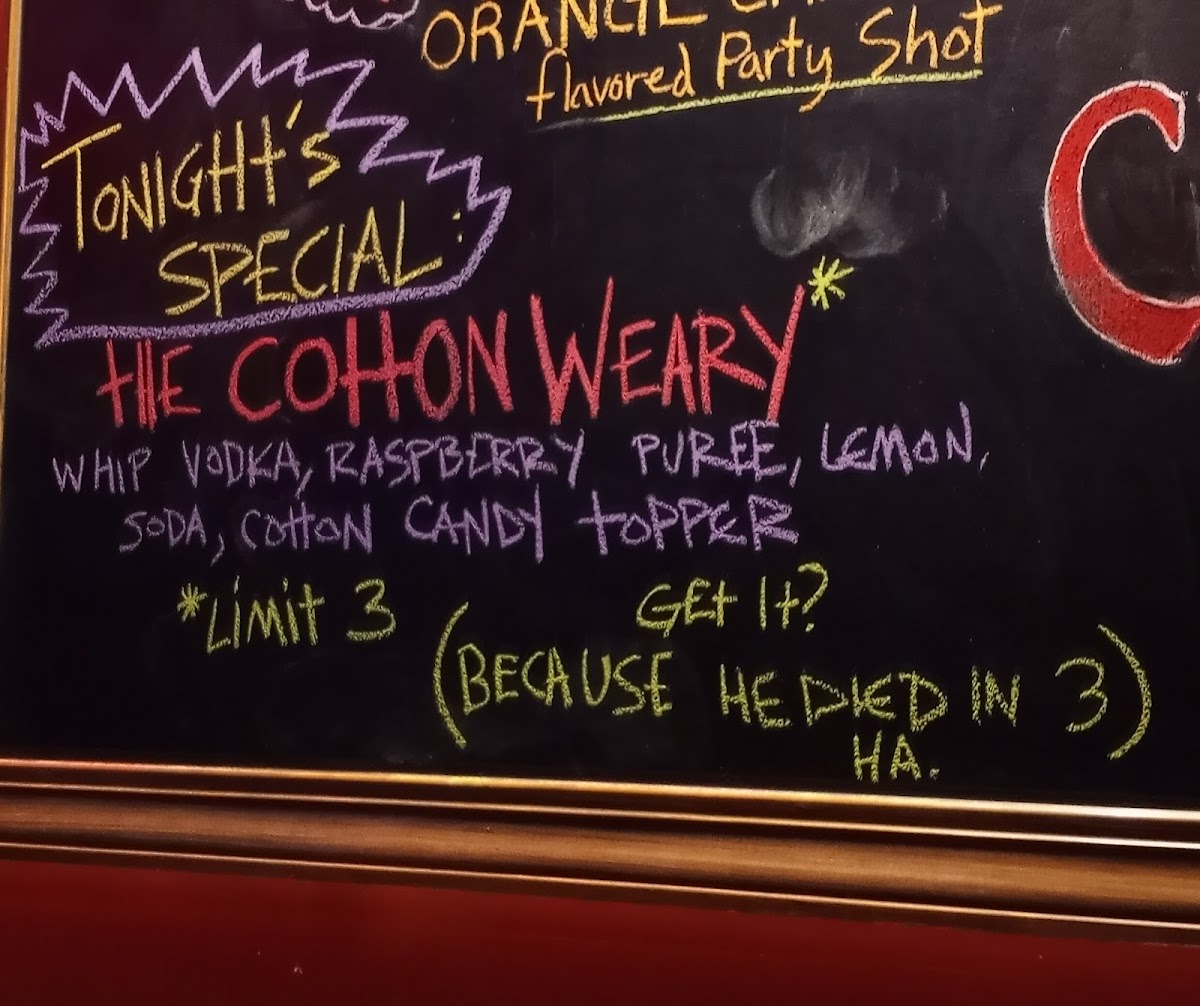 ORANGE
flavored Party Shot
TONIGHT's
SPECIAL:
THE COttON WEARY*
WHIP VODKA, RASPBERRY PUREE, LEMON,
SODA, COttON CANDY tOPPER
*Limit 3
GEt It?
(BECAUSE HE DIED IN 3)
HA.
C